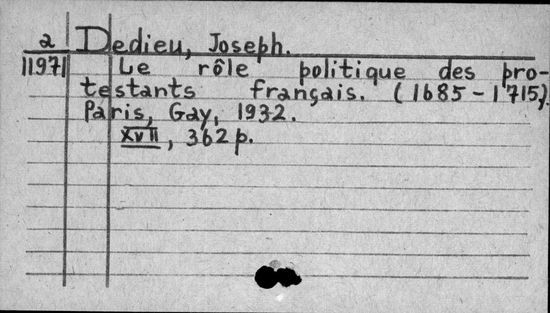 2 Dedieu, Joseph.
11971 Le rôle politique des pro-
testants français. (1685-1715).
Paris, Gay, 1932.
XVII, 362 p.